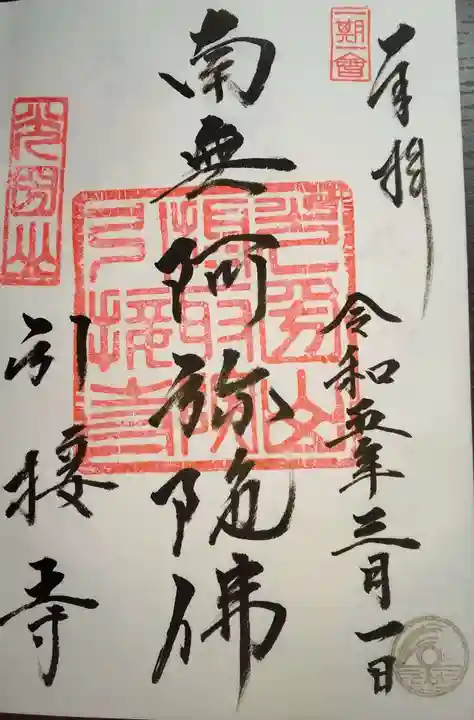 一期一會
奉拝
令和五年三月一日
南無阿弥陀佛
光明山
引接寺